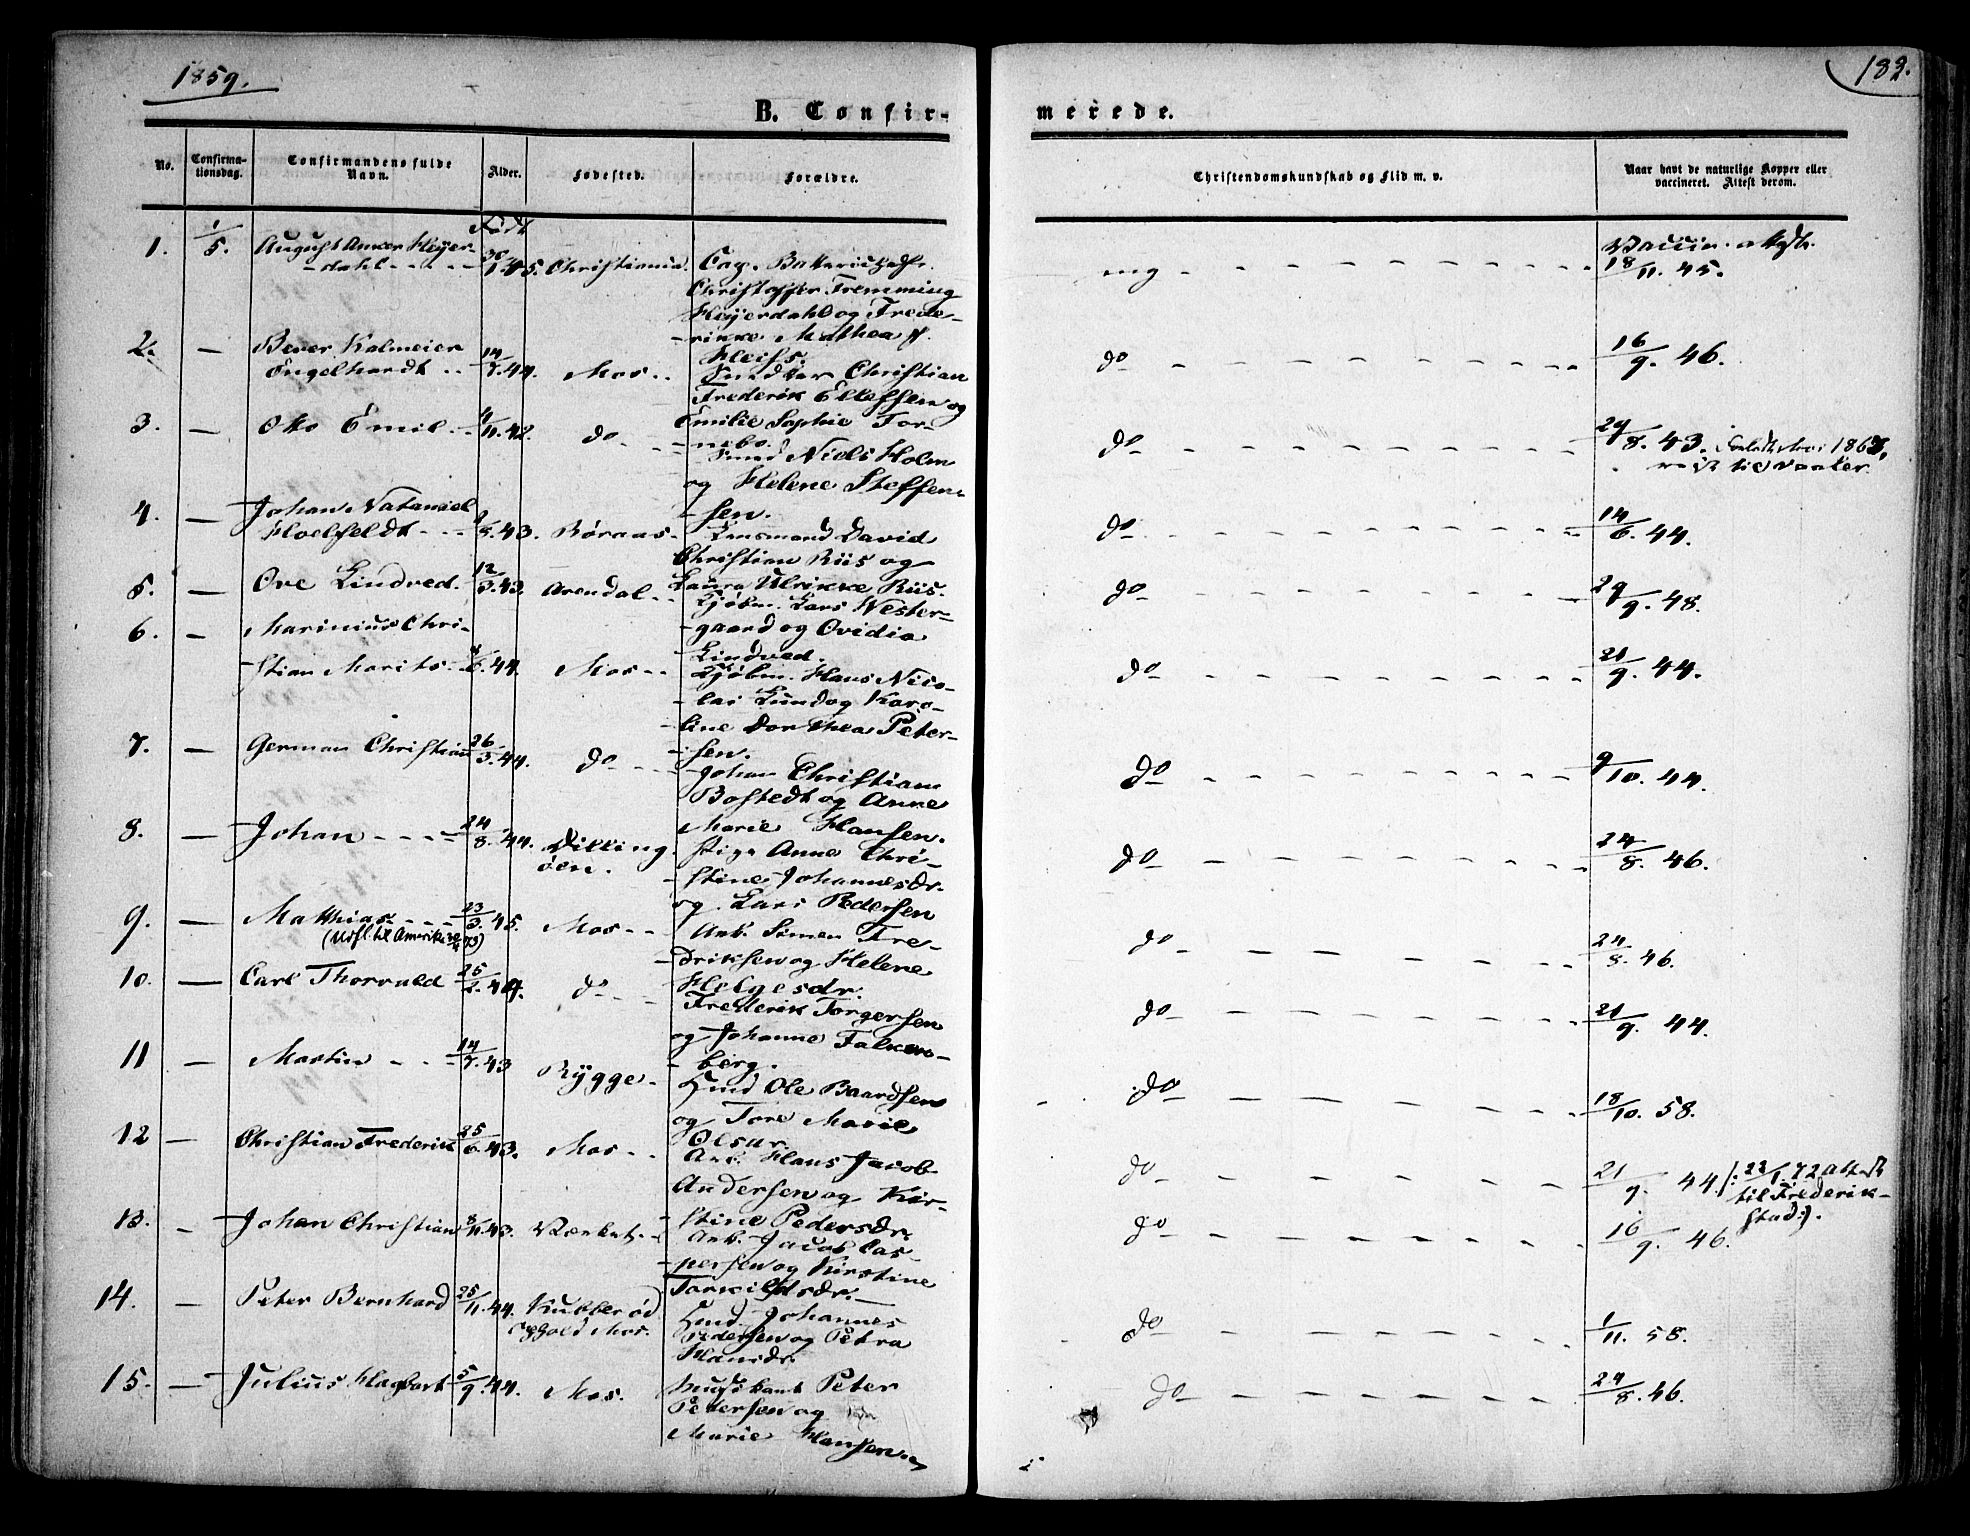 1859.
182.
B. Confir-
merede.
No.
Confirma-
tionsdag.
Confirmandens fulde
Navn.
Alder.
Fødested.
Forældre.
Christendomskundskab og Flid m. v.
Naar havt de naturlige Kopper eller
vaccineret. Attest derom.
1. 1/5. August Anker Heyer-
dahl 30/1 45. Christiania. Cap.
Christoffer Fremming
Heyerdahl og Frede-
rikke Mathea f.
Heiss.
mg
18/11. 45.
2. — Bever Kalmeier
Engelhardt 14/7. 44. Mos Christian
Frederik Ellefsen og
Emilie Sophie Tor-
nebo.
do 16/9. 46.
3. — Otto Emil 4/11. 42. do Smed Niels Holm
og Helene Steffen-
sen.
do 29/8. 43.
til Vaaler.
4. — Johan Natanael
Hoelfeldt 43. Børaas Lensmand David
Christian Riis og
Laura Ulrikke Riis.
do 14/6. 44.
5. — Ove Lindved. 12/3. 43. Arendal Kjøbm. Lars Wester-
gaard og Ovidia
Lindved.
do 29/9. 48.
6. — Marinius Chri-
stian Morits 44. Mos Kjøbm. Hans Nico-
lai Lund og Karo-
line Dorthea Peter-
sen.
do 21/9. 44.
7. — German Christian 26/3. 44. do Johan Christian
Bostedt og Anne
Marie Hansen.
do 9/10. 44.
8. — Johan 24/8. 44. Dilling-
øen. Pige Anne Chri-
stine Johannesdr.
og Lars Pedersen
do 24/8. 46.
9. — Matthias 23/3. 45. Mos Arb. Simen Fre-
driksen og Helene
Helgesdr.
(Udfl. til Amerika
do 24/8. 46.
10. — Carl Thorvald 25/2. 44. do Frederik Torgersen
og Johanne Falken-
berg.
do 21/9. 44.
11 — Martin 14/7. 43 Rygge Hmd Ole Baardsen
og Tore Marie
Olsdr.
do 18/10. 58.
12 — Christian Frederik 25/6. 43. Mos Arb. Hans Jacob
Andersen og Kir-
stine Pedersdr.
do 21/9. 44 /: 23/1. 72 Attest
til Frederik-
stad :/.
13. — Johan Christian 8/11. 43. Værket Arb. Jacob Cas-
persen og Kirstine
Torkildsdr.
do 16/9. 46.
14. — Peter Bernhard 25/11. 44. Kubberød
Ophold Mos. Hmd. Johannes
Pedersen og Petra
Hansdr.
do 1/11. 58.
15. — Julius Hagbart 5/9. 44. Mos. Musikant Peter
Pedersen og
Marie Hansen.
do 24/8. 46.